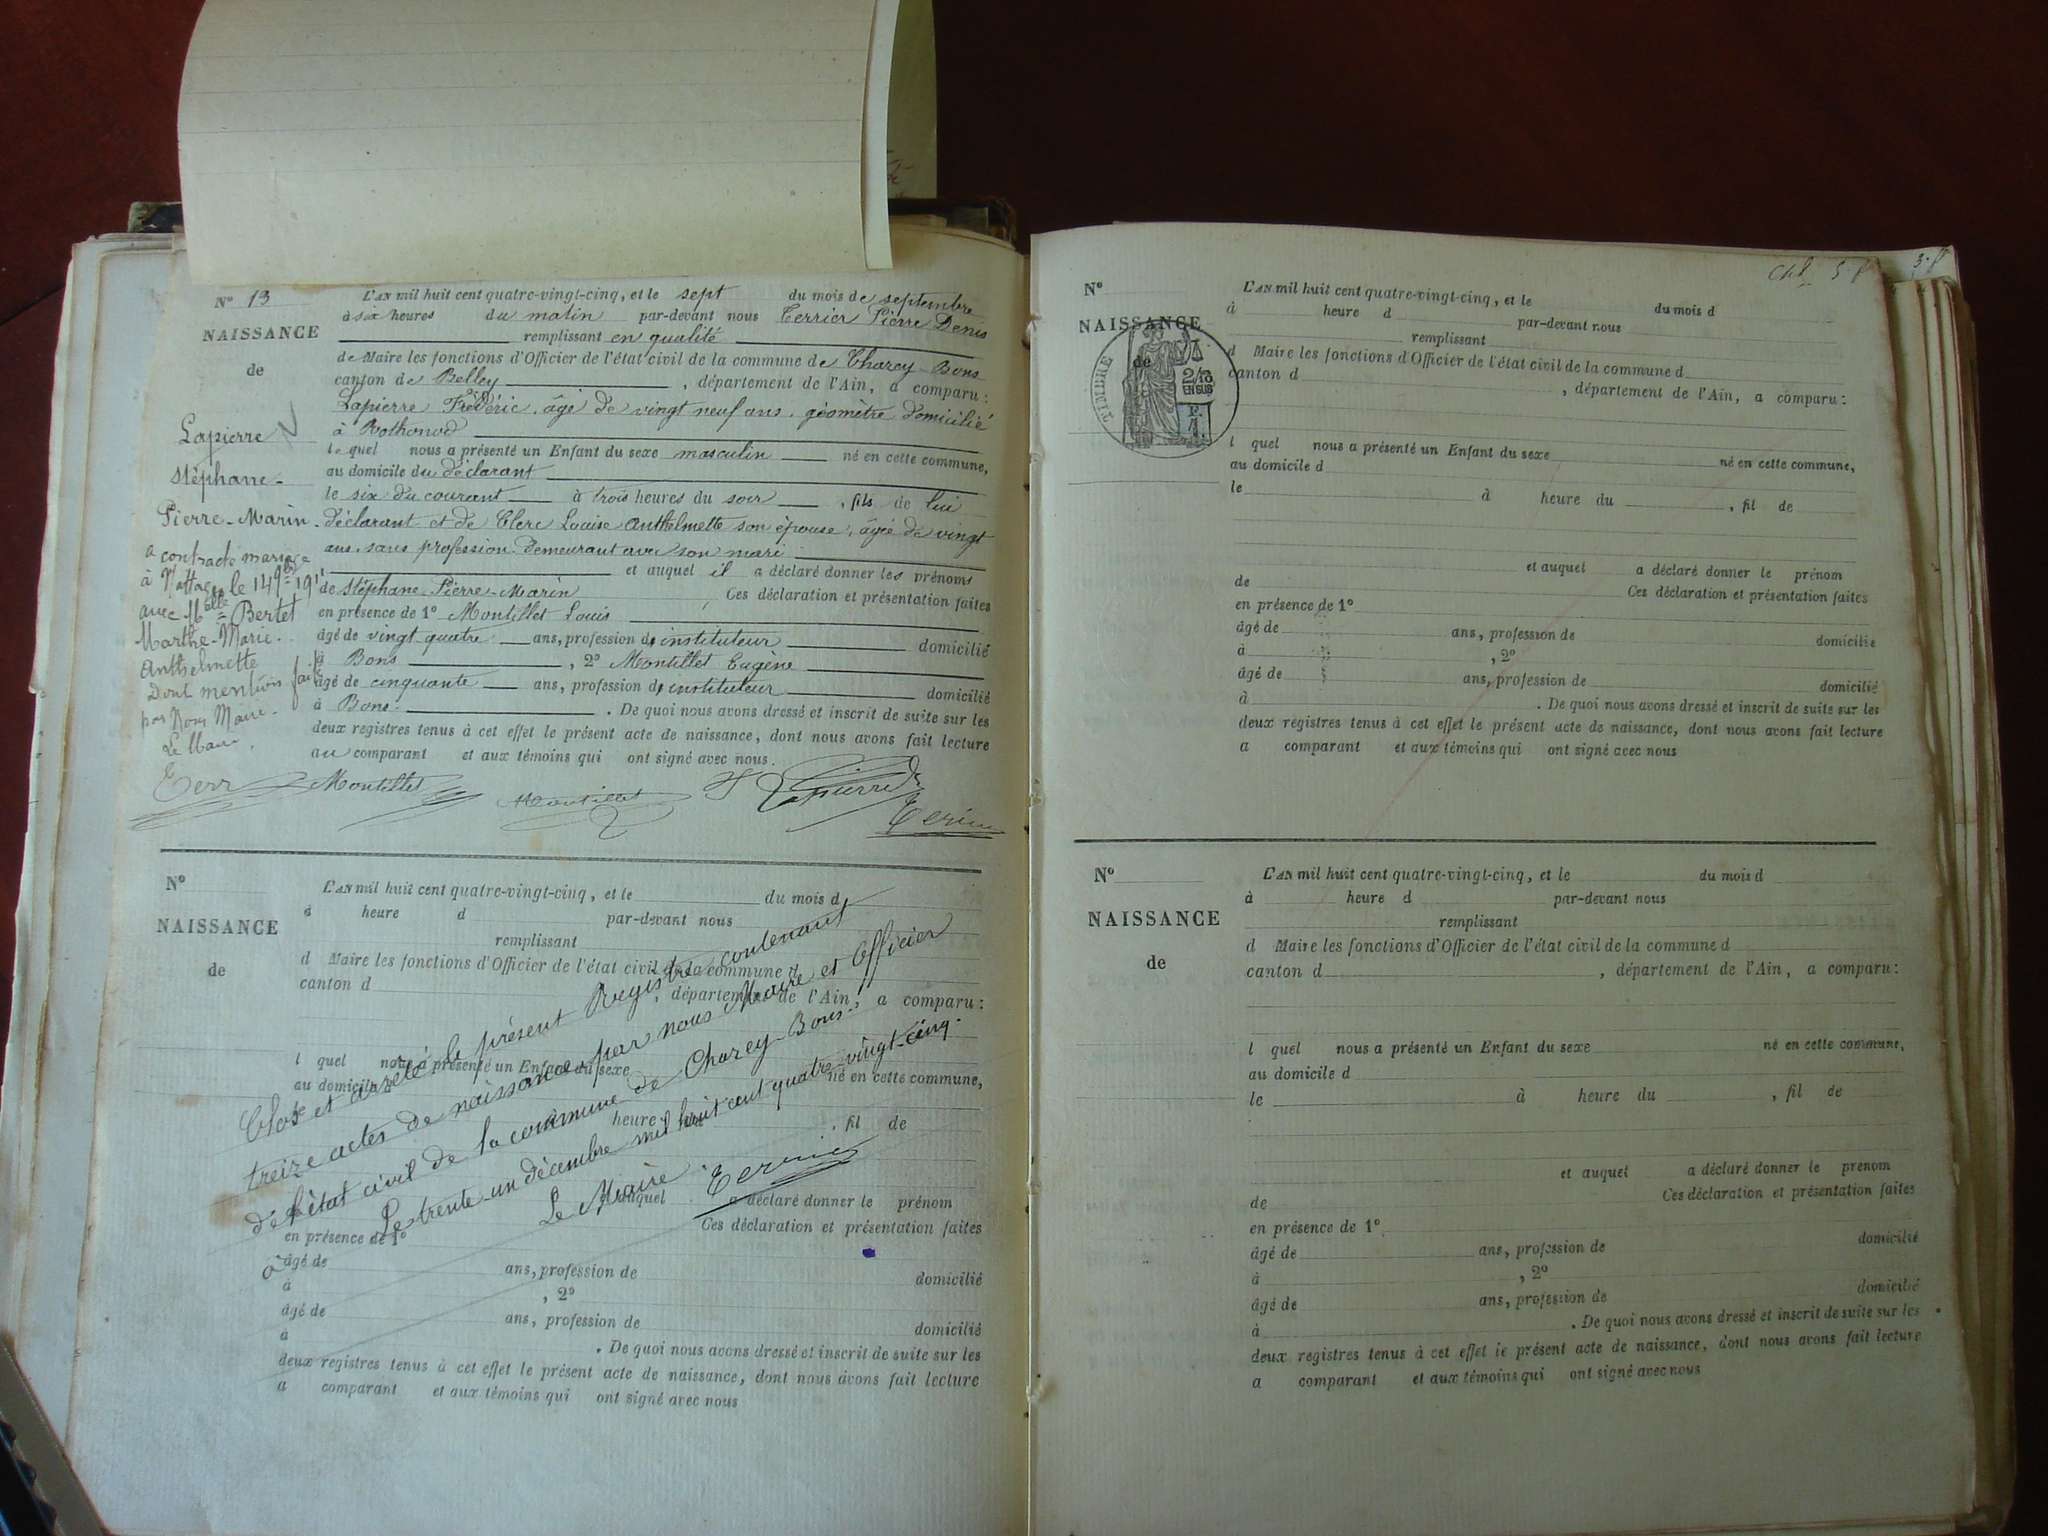 N° 13
NAISSANCE
de
Lapierre
Stéphane-
Pierre-Marin.
a contracté mariage
à Nattages le 14 9bre 1911
avec Melle Bertet
Marthe-Marie-
Anthelmette
Dont mention faite
par Nous Maire.
Le Maire,
L'AN mil huit cent quatre-vingt-cinq, et le sept du mois de septembre
à six heures du matin par-devant nous Terrier Pierre Denis
remplissant en qualité
de Maire les fonctions d'Officier de l'état civil de la commune de Tharey-Bons
canton de Belley, département de l'Ain, a comparu:
Lapierre Frédéric, âgé de vingt neuf ans, géomètre domicilié
à Rothonod
lequel nous a présenté un Enfant du sexe masculin né en cette commune,
au domicile du déclarant
le six du courant à trois heures du soir, fils de lui
déclarant et de Clerc Louise Anthelmette son épouse, âgée de vingt
ans, sans profession demeurant avec son mari
et auquel il a déclaré donner les prénoms
de Stéphane-Pierre-Marin Ces déclaration et présentation faites
en présence de 1° Montillet Louis
âgé de vingt quatre ans, profession d'instituteur domicilié
à Bons, 2° Montillet Eugène
âgé de cinquante ans, profession d'instituteur domicilié
à Bons. De quoi nous avons dressé et inscrit de suite sur les
deux registres tenus à cet effet le présent acte de naissance, dont nous avons fait lecture
au comparant et aux témoins qui ont signé avec nous.
Montillet Montillet Lapierre
N°
NAISSANCE
de
L'AN mil huit cent quatre-vingt-cinq, et le du mois d
à heure d par-devant nous
remplissant
d Maire les fonctions d'Officier de l'état civil de la commune d
canton d, département de l'Ain, a comparu:
l quel nous a présenté un Enfant du sexe né en cette commune,
au domicile d
heure, fil de
auquel a déclaré donner le prénom
Ces déclaration et présentation faites
en présence de 1°
âgé de ans, profession de domicilié
à, 2°
âgé de ans, profession de domicilié
à. De quoi nous avons dressé et inscrit de suite sur les
deux registres tenus à cet effet le présent acte de naissance, dont nous avons fait lecture
a comparant et aux témoins qui ont signé avec nous
Clos et arrêté le présent Registre contenant
treize actes de naissance par nous Maire et Officier
de l'état civil de la commune de Charey-Bons.
Le trente-un décembre mil huit cent quatre-vingt-cinq.
Le Maire.
3 f
N°
NAISSANCE
de
TIMBRE
2/10
EN SUS
L'AN mil huit cent quatre-vingt-cinq, et le du mois d
à heure d par-devant nous
remplissant
d Maire les fonctions d'Officier de l'état civil de la commune d
canton d, département de l'Ain, a comparu:
l quel nous a présenté un Enfant du sexe né en cette commune,
au domicile d
le à heure du, fil de
et auquel a déclaré donner le prénom
de Ces déclaration et présentation faites
en présence de 1°
âgé de ans, profession de domicilié
à, 2°
âgé de ans, profession de domicilié
à. De quoi nous avons dressé et inscrit de suite sur les
deux registres tenus à cet effet le présent acte de naissance, dont nous avons fait lecture
a comparant et aux témoins qui ont signé avec nous
N°
NAISSANCE
de
L'AN mil huit cent quatre-vingt-cinq, et le du mois d
à heure d par-devant nous
remplissant
d Maire les fonctions d'Officier de l'état civil de la commune d
canton d, département de l'Ain, a comparu:
l quel nous a présenté un Enfant du sexe né en cette commune,
au domicile d
le à heure du, fil de
et auquel a déclaré donner le prénom
de Ces déclaration et présentation faites
en présence de 1°
âgé de ans, profession de domicilié
à, 2°
âgé de ans, profession de domicilié
à. De quoi nous avons dressé et inscrit de suite sur les
deux registres tenus à cet effet le présent acte de naissance, dont nous avons fait lecture
a comparant et aux témoins qui ont signé avec nous